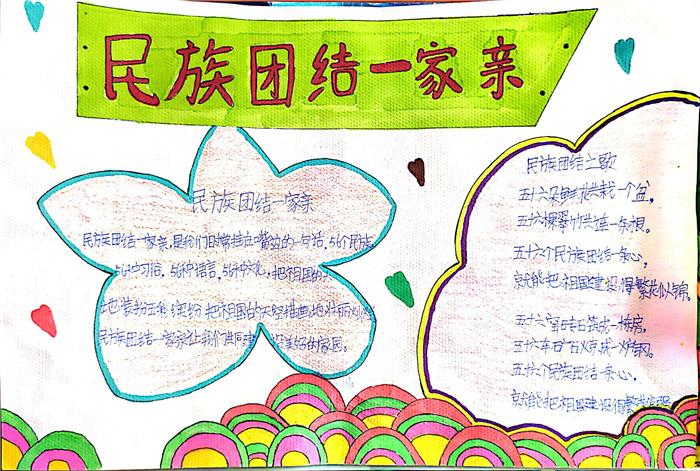 民族团结一家亲
民族团结一家亲
民族团结一家亲,是我们日常挂在嘴边的一句话,56个民族
56种习俗,56种语言,56种文化,把祖国的大
地装扮五彩缤纷 把祖国的天空描画地壮丽
民族团结一家亲让我们共同建设美好的家园。
民族团结之歌
五十六朵鲜花共栽一个盆,
五十六棵翠竹共连一条根。
五十六个民族团结一条心,
就能把祖国建设得繁花似锦。
五十六宝砖筑成一栋房,
五十六车矿石炼成一炉钢。
五十六个民族团结一条心,
就能把祖国建设得繁荣